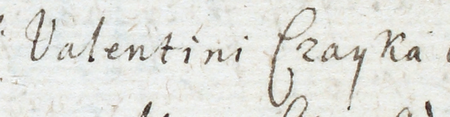 Valentini Czayka